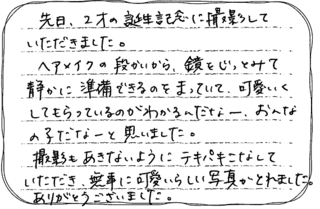 先日、2才の誕生記念に撮影して
いただきました。
ヘアメイクの段かいから、鏡をじっとみて
静かに準備できるのをまっていて、可愛いく
してもらっているのがわかるんだなー、おんな
の子だなーと思いました。
撮影もあきないようにテキパキこなして
いただき、無事に可愛いらしい写真がとれました。
ありがとうございました。